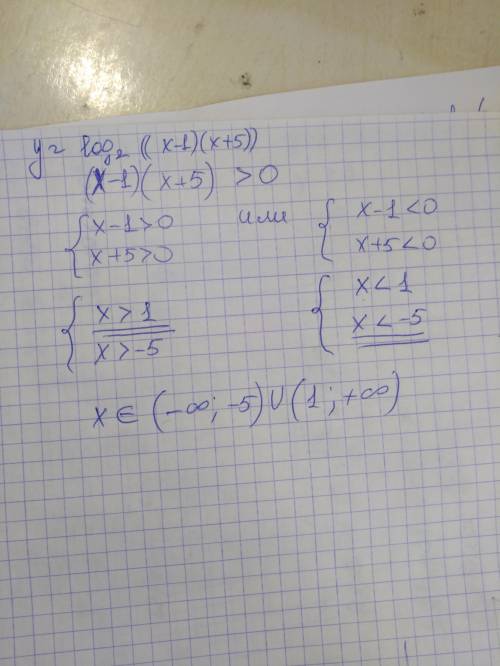 y = log₂ ((x-1)(x+5))
(x-1)(x+5) > 0
{ x-1>0 или { x-1<0
{ x+5>0 { x+5<0
{ x > 1 { x < 1
{ x > -5 { x < -5
x ∈ (-∞; -5) ∪ (1; +∞)